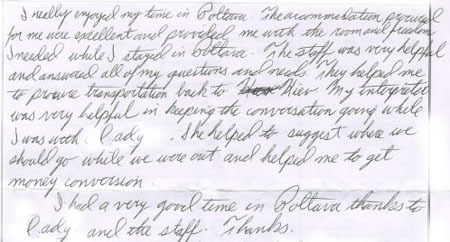 I really enjoyed my time in Poltava. The accommodation procured
for me were excellent and provided me with the room and freedom
I needed while I stayed in Poltava. The staff was very helpful
and answered all of my questions and needs. They helped me
to procure transportation back to Kiev My Interpreter
was very helpful in keeping the conversation going while
I was with lady. She helped to suggest where we
should go while we were out and helped me to get
money conversion.
I had a very good time in Poltava thanks to
lady and the staff. Thanks.